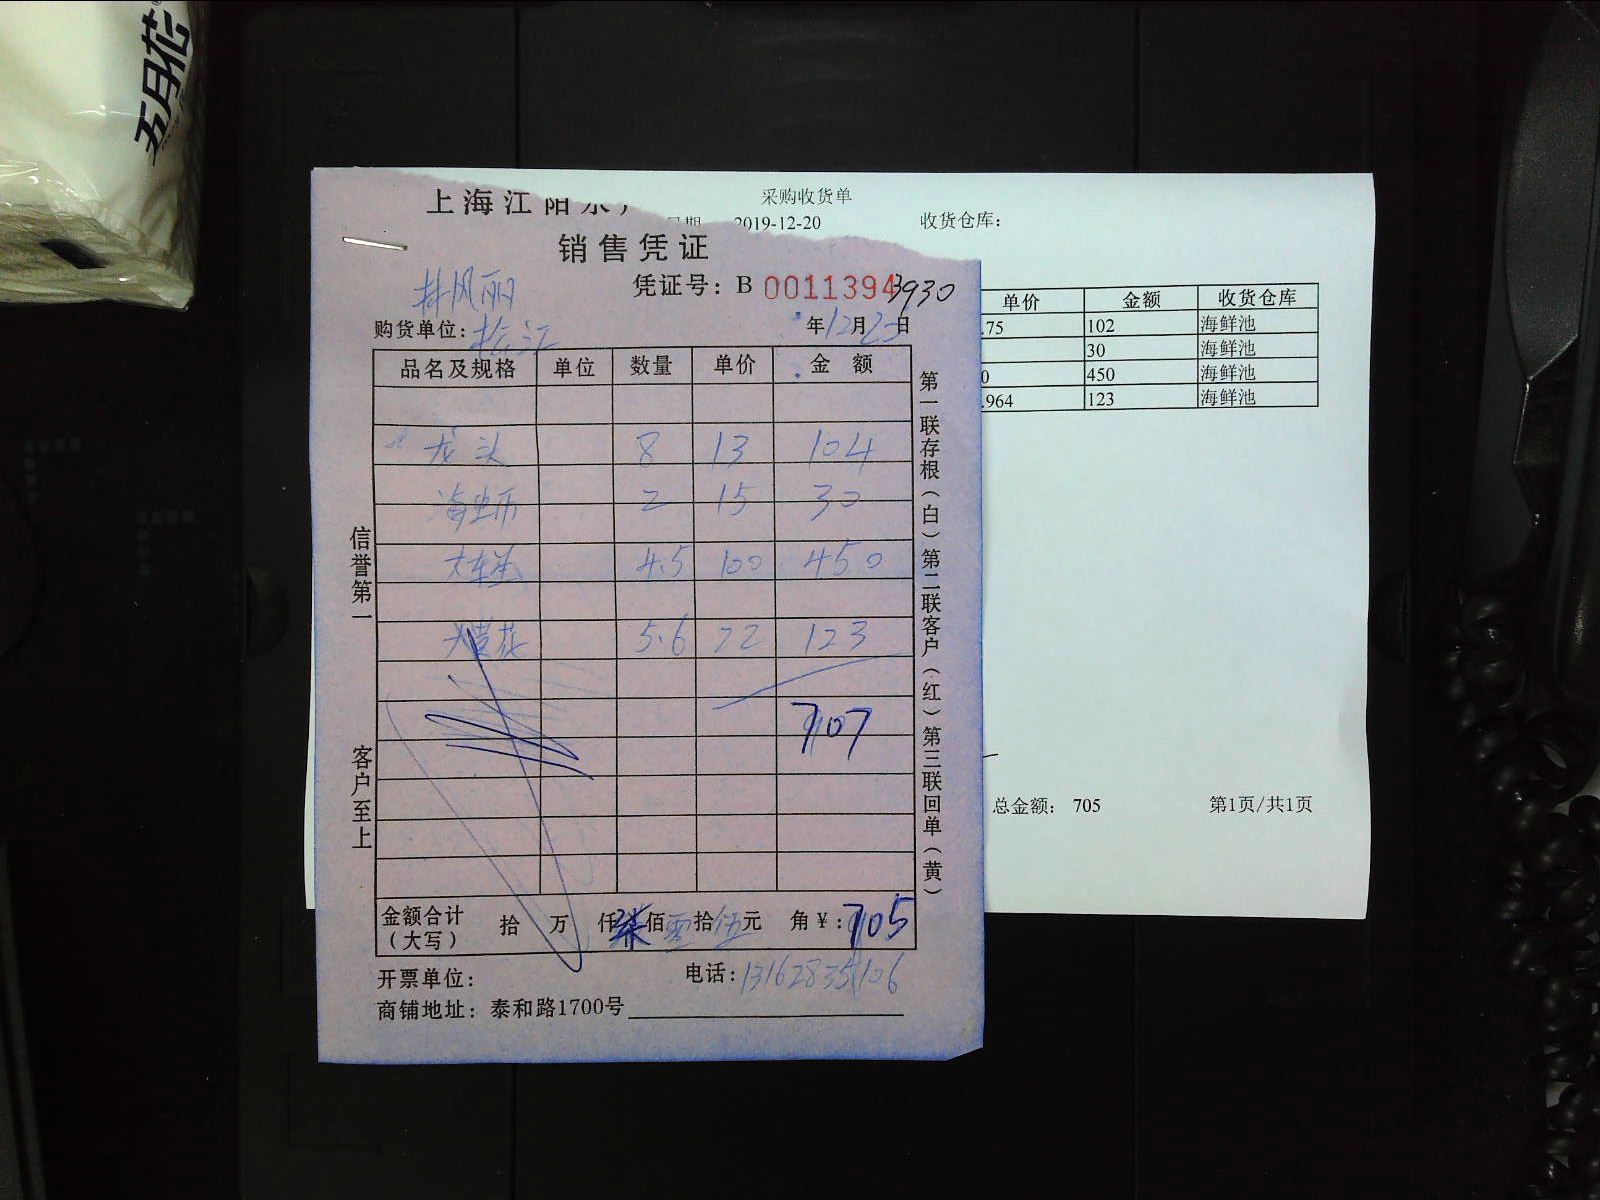 五月花
采购收货单
2019-12-20 收货仓库:
单价 金额 收货仓库
.75 102 海鲜池
30 海鲜池
0 450 海鲜池
.964 123 海鲜池
总金额: 705 第1页/共1页
上海江阳水
销售凭证
凭证号: B 0011394 3930
购货单位: 松江 年12月25日
品名及规格 单位 数量 单价 金额
龙头 8 13 104
2 15 30
4.5 100 450
5.6 22 123
707
金额合计(大写) 拾 万 仟柒佰零拾伍元 角¥: 705
开票单位: 电话: 13162835106
商铺地址: 泰和路1700号
信誉第一 客户至上
第一联存根(白)第二联客户(红)第三联回单(黄)